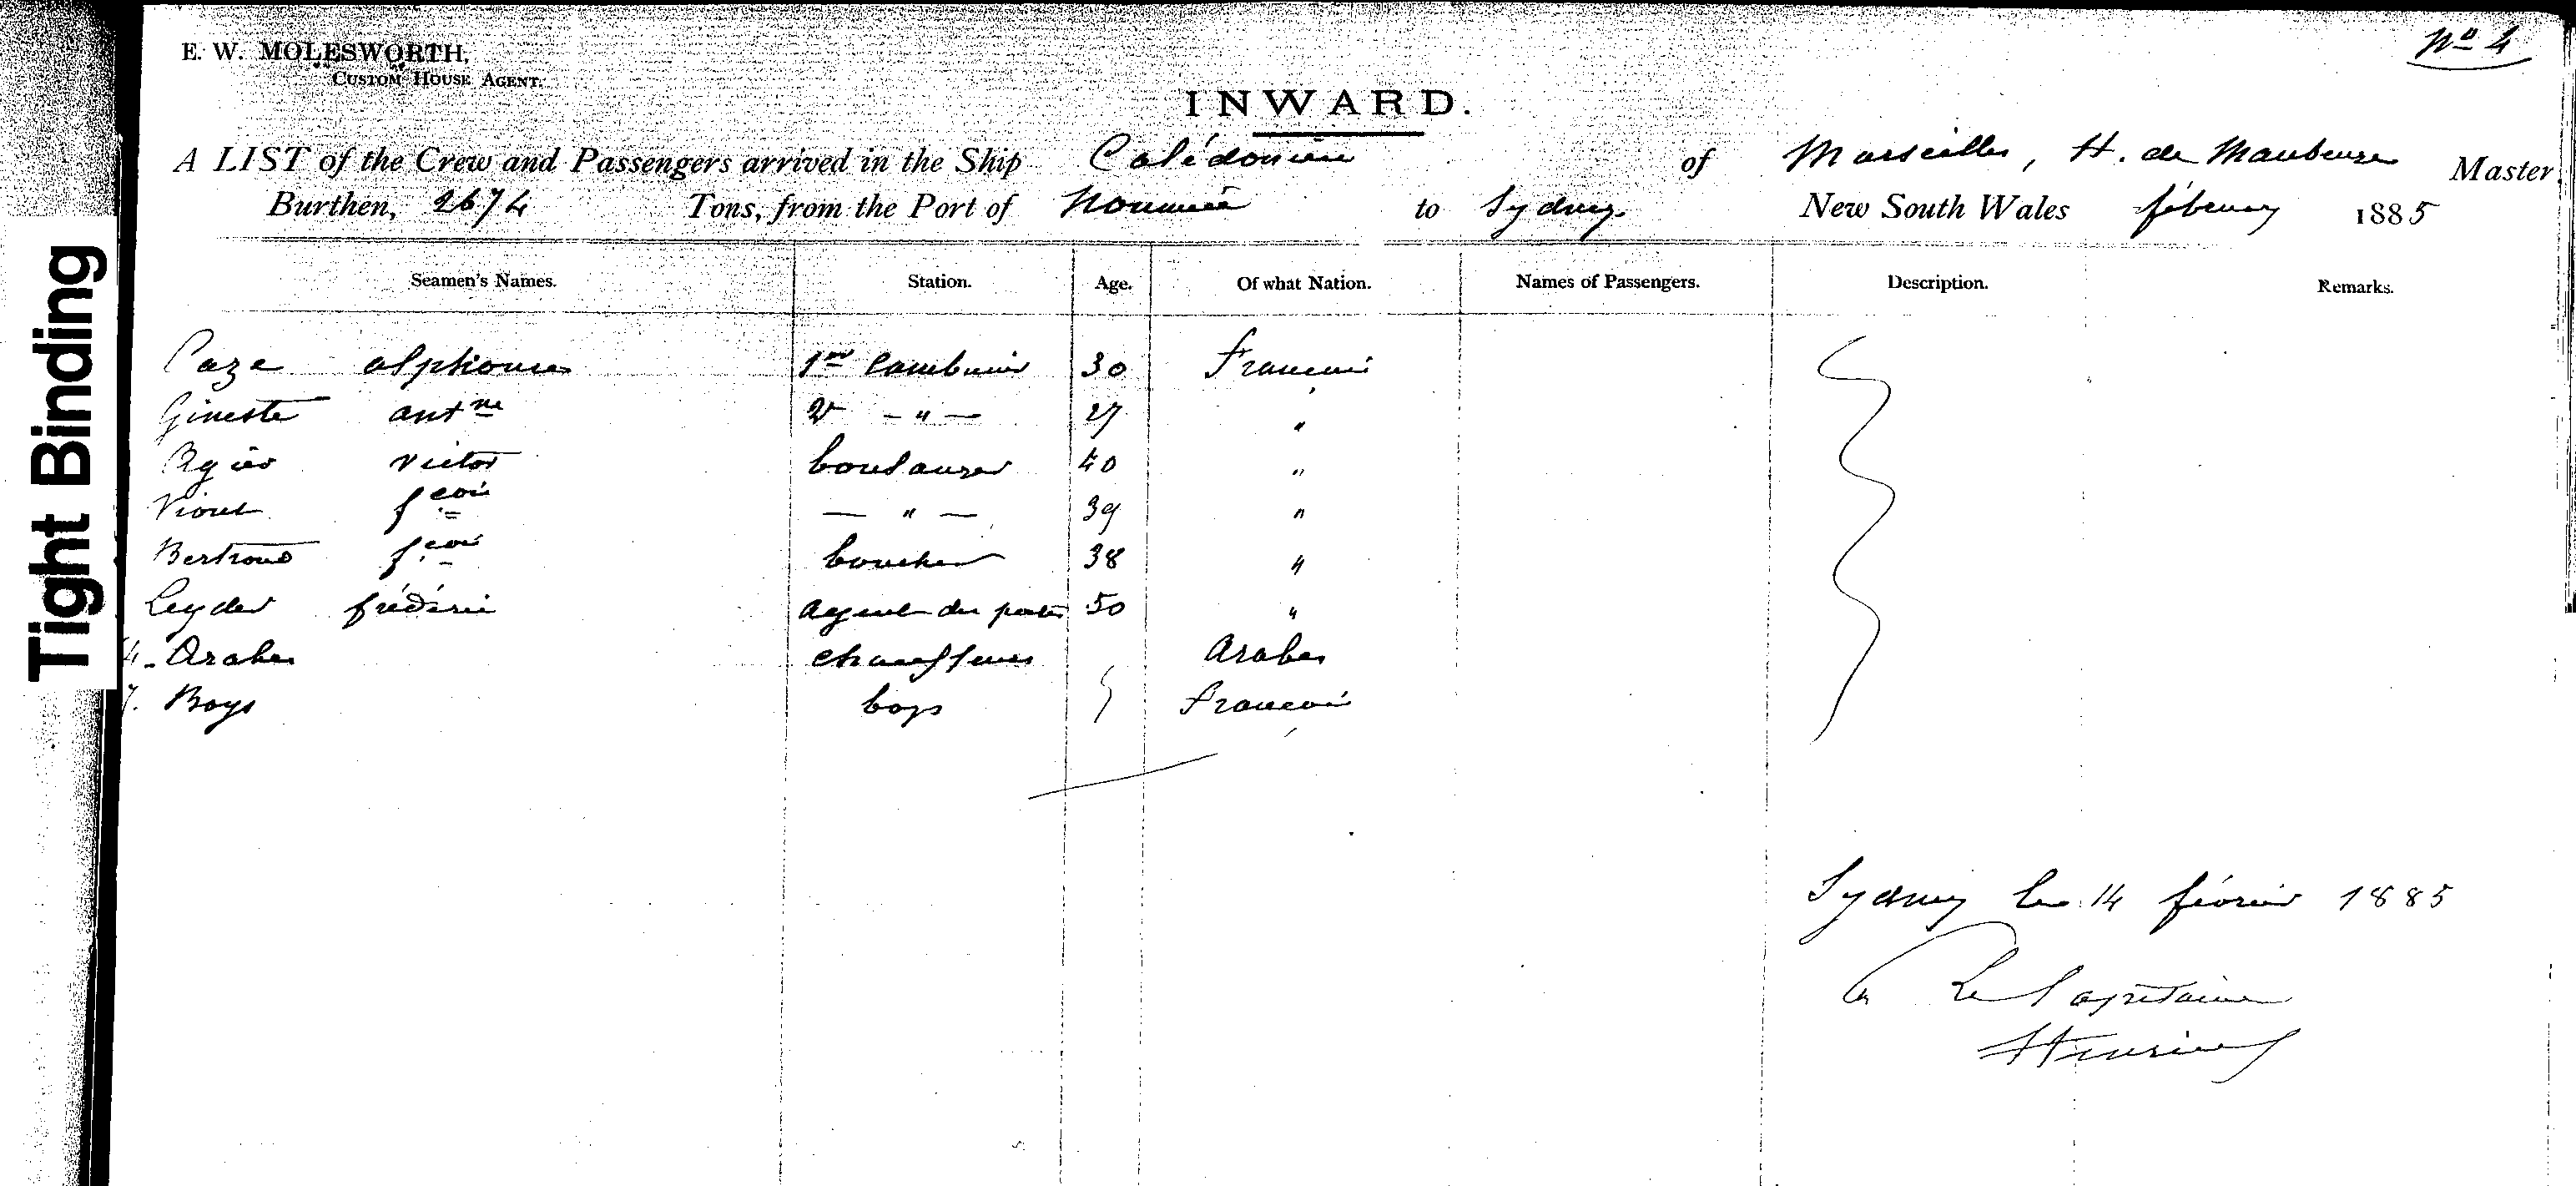 Tight Binding
E. W. MOLESWORTH,
CUSTOM HOUSE AGENT.
No 4
INWARD.
A LIST of the Crew and Passengers arrived in the Ship Calédonien of Marseilles, H. de Maubeuge Master
Burthen, 2674 Tons, from the Port of Nouméa to Sydney New South Wales february 1885
Seamen's Names. Station. Age. Of what Nation. Names of Passengers. Description. Remarks.
Caze alphonse 1er Cambusier 30 francais
Gineste antne 2e — " — 27 "
Agier victor boulanger 40 "
Viout fcois — " — 39 "
Bertrand fcois boucher 38 "
Leyder frédéric agent des postes 50 "
Arabes chauffeurs Arabes
7. Boys boys francais
Sydney le 14 février 1885
Le Capitaine